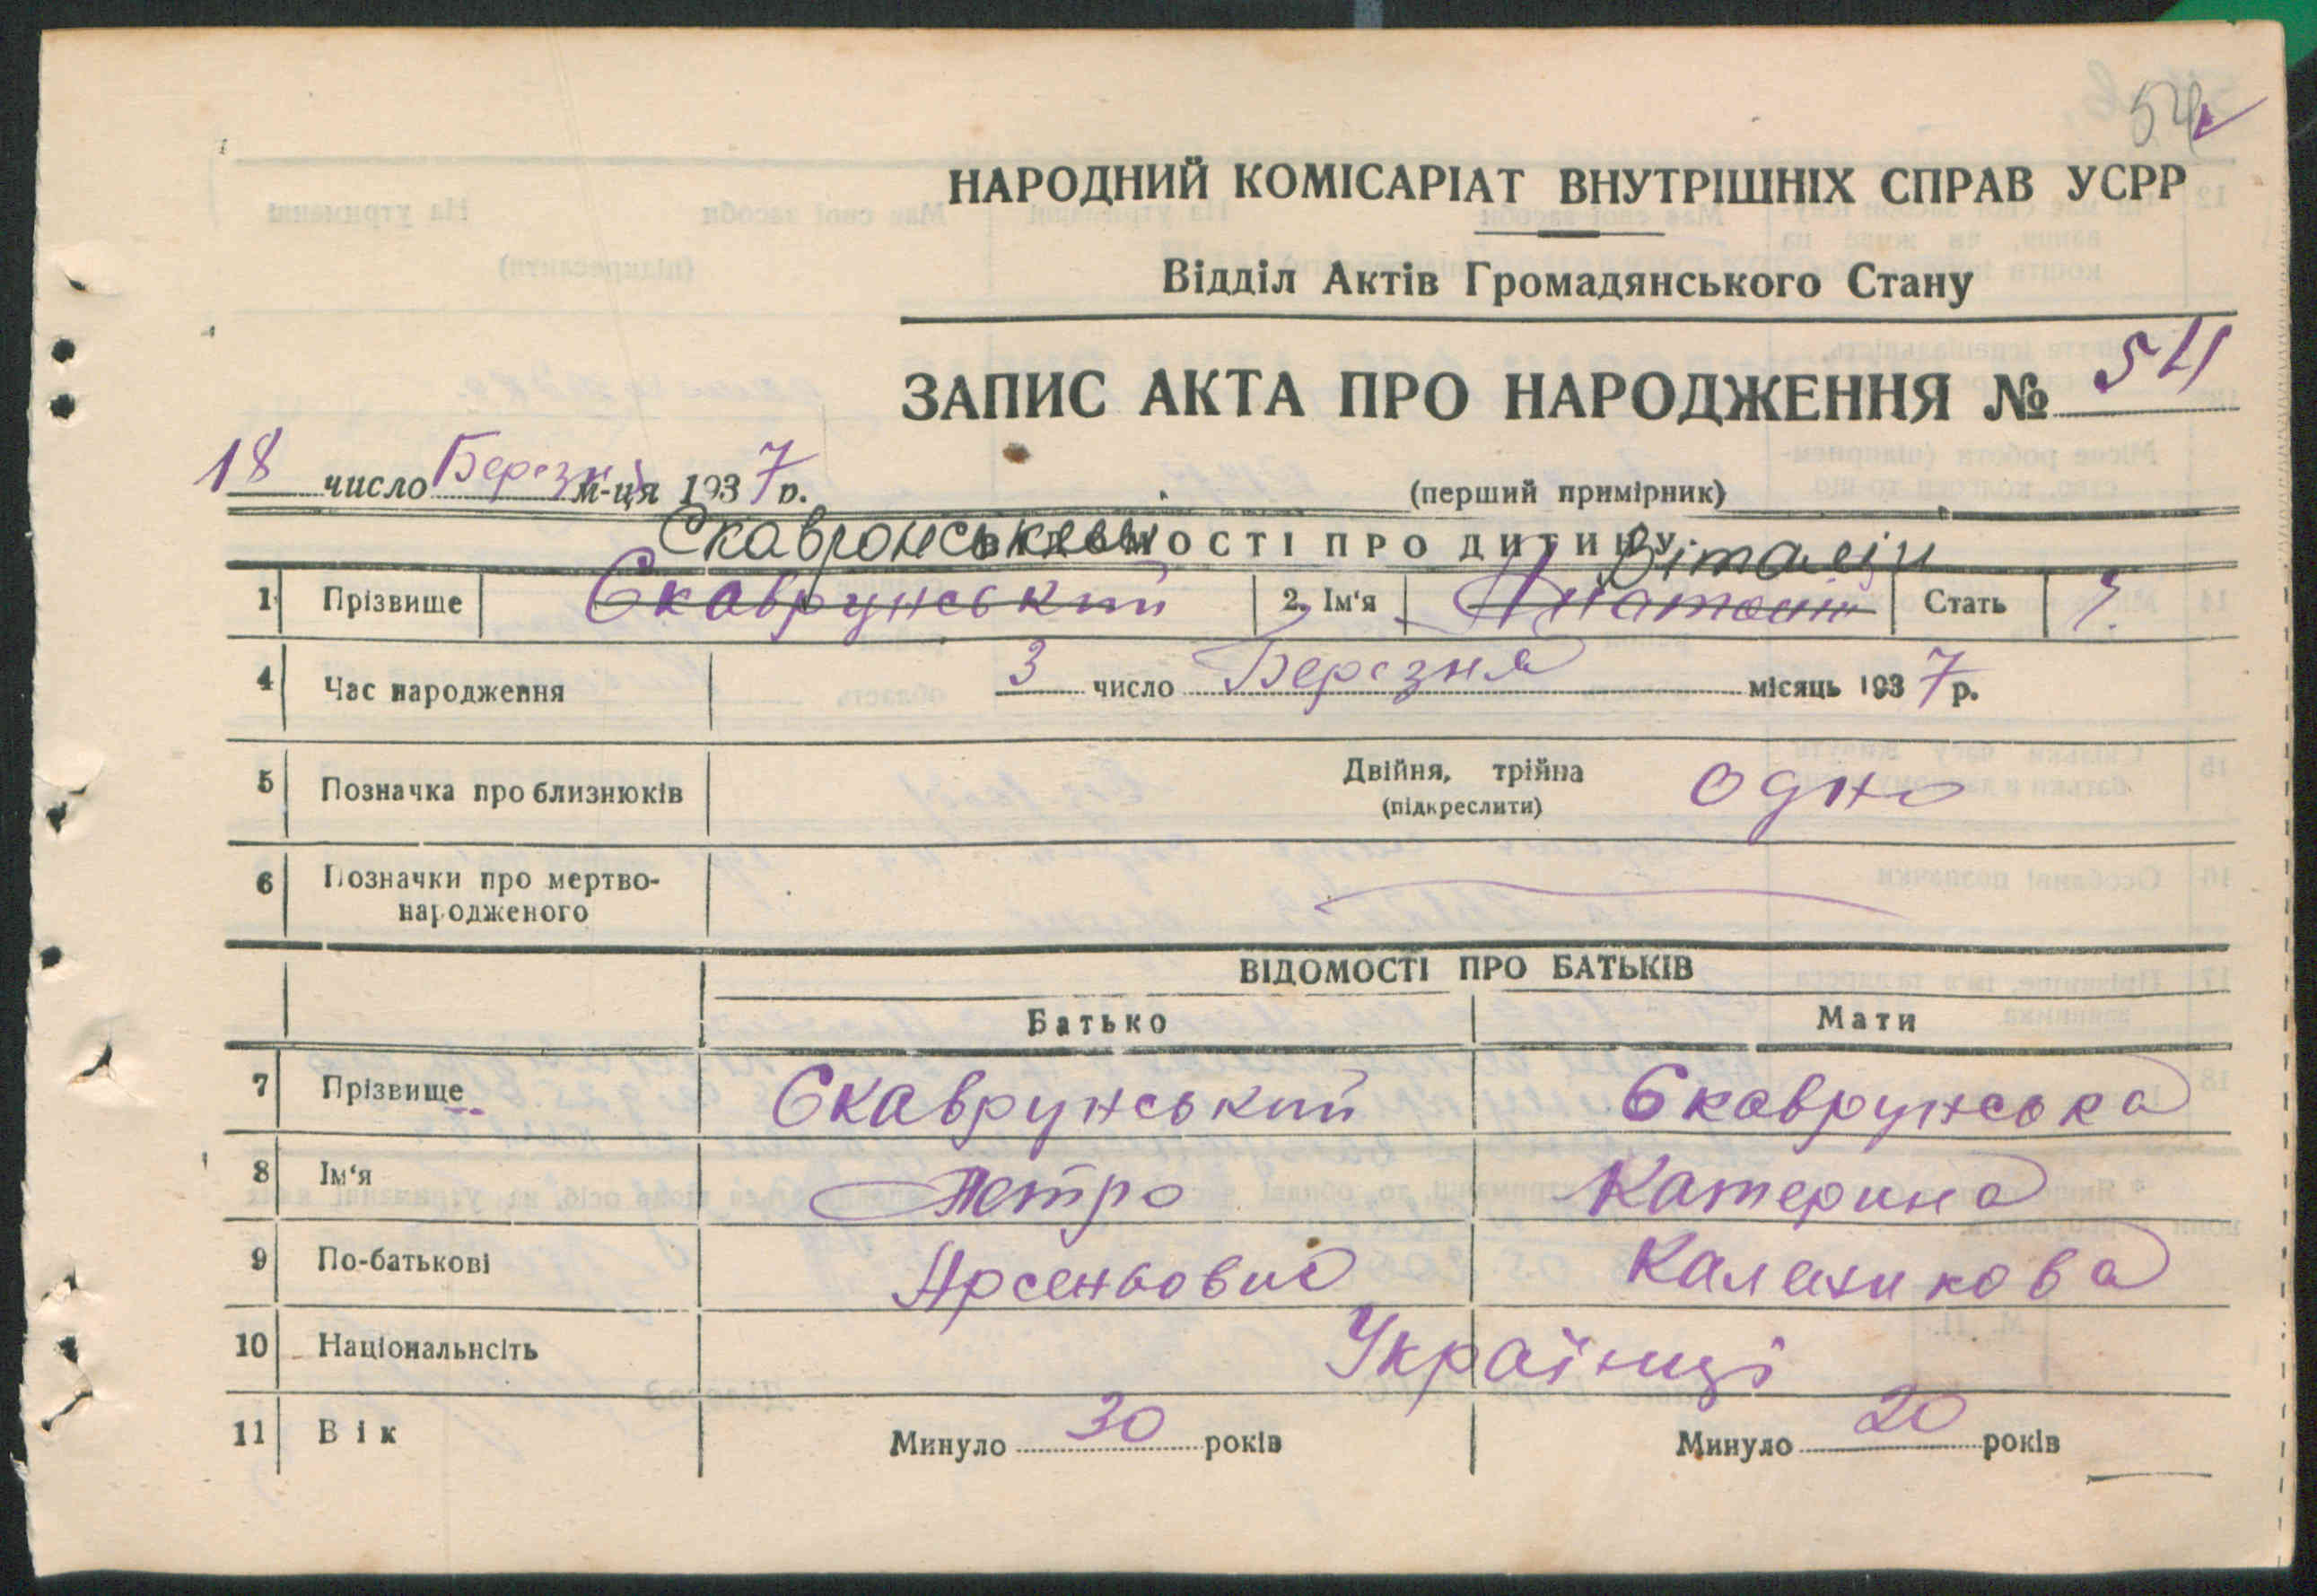 54
НАРОДНИЙ КОМІСАРІАТ ВНУТРІШНІХ СПРАВ УСРР
Відділ Актів Громадянського Стану
ЗАПИС АКТА ПРО НАРОДЖЕННЯ №
18 число Березня м-ця 1937 р.
(перший примірник)
ВІДОМОСТІ ПРО ДИТИНУ
Скавронський Віталій
1 Прізвище Скаврунський 2. Ім'я Анатолій Стать Ч.
4 Час народження 3 число Березня місяць 1937 р.
5 Позначка про близнюків Двійня, трійна одно
(підкреслити)
6 Позначки про мертво-
народженого
ВІДОМОСТІ ПРО БАТЬКІВ
Батько Мати
7 Прізвище Скаврунський Скаврунська
8 Ім'я Петро Катерина
9 По-батькові Арсеньович Каленикова
10 Національнсіть Українці
11 Вік Минуло 30 років Минуло 20 років